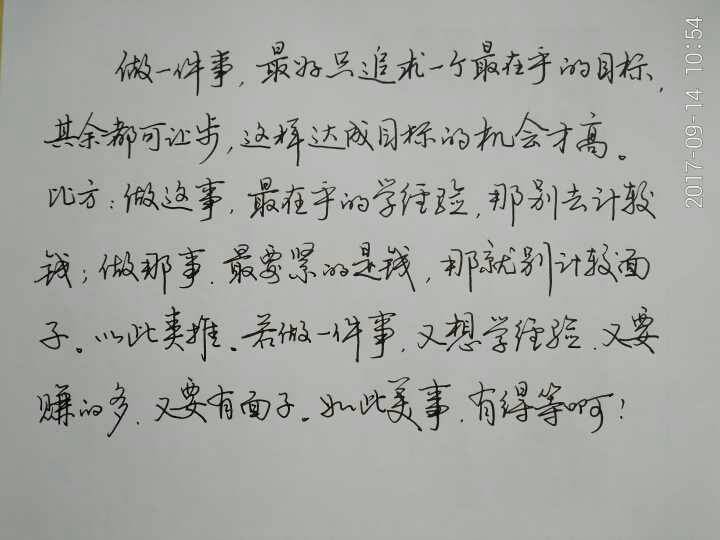 做一件事，最好只追求一个最在乎的目标，
其余都可让步，这样达成目标的机会才高。
比方：做这事，最在乎的学经验，那别去计较
钱；做那事，最要紧的是钱，那就别计较面
子。以此类推。若做一件事，又想学经验，又要
赚的多，又要有面子。如此美事，有得等啊！
2017-09-14 10:54